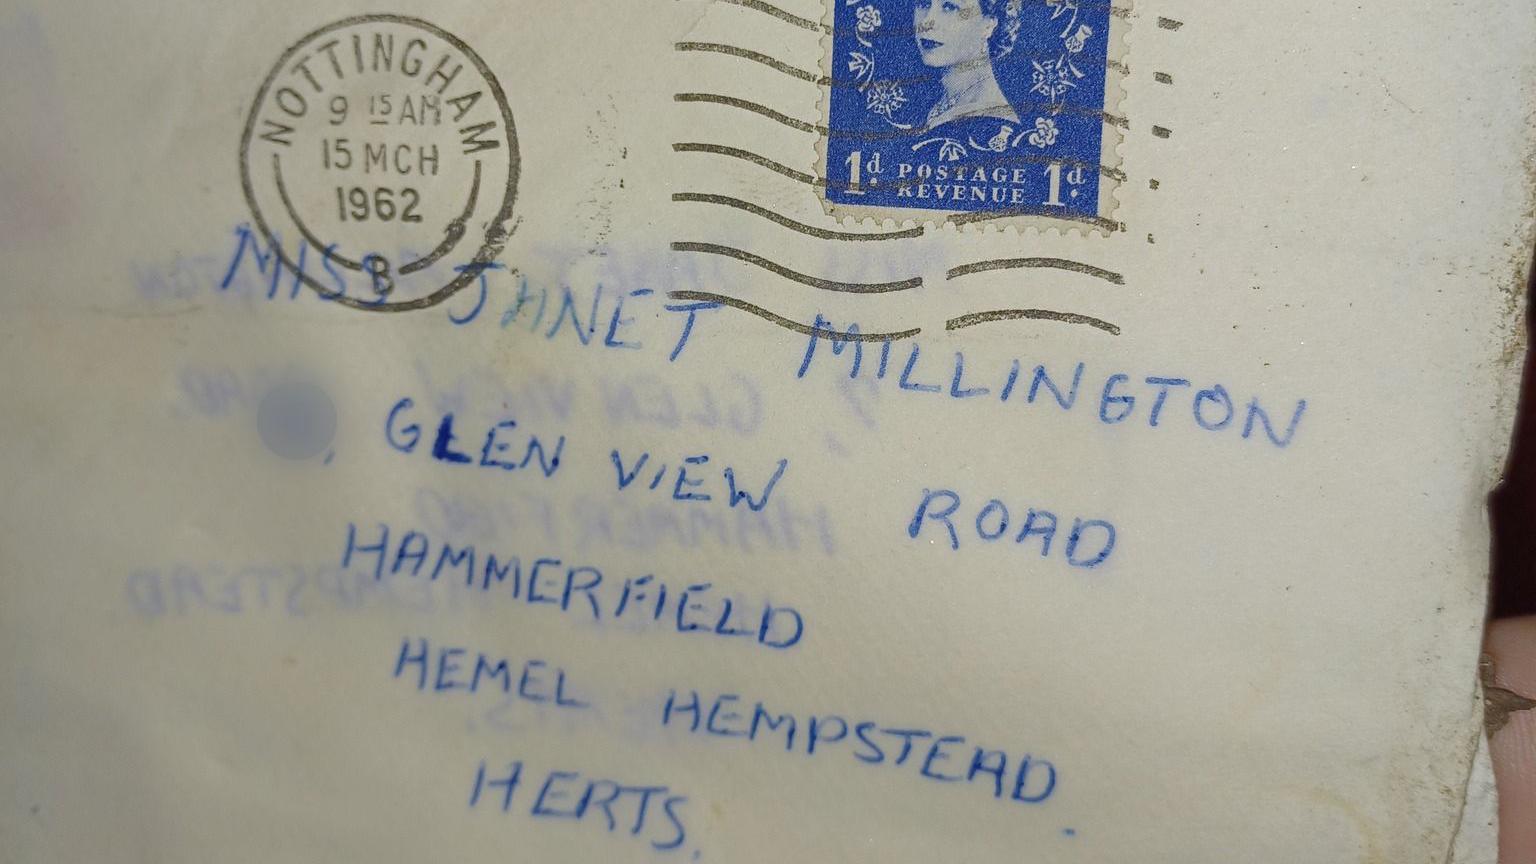 NOTTINGHAM
9 15 AM
15 MCH
1962
B
1d. POSTAGE 1d.
REVENUE
MISS JANET MILLINGTON
, GLEN VIEW ROAD
HAMMERFIELD
HEMEL HEMPSTEAD.
HERTS.